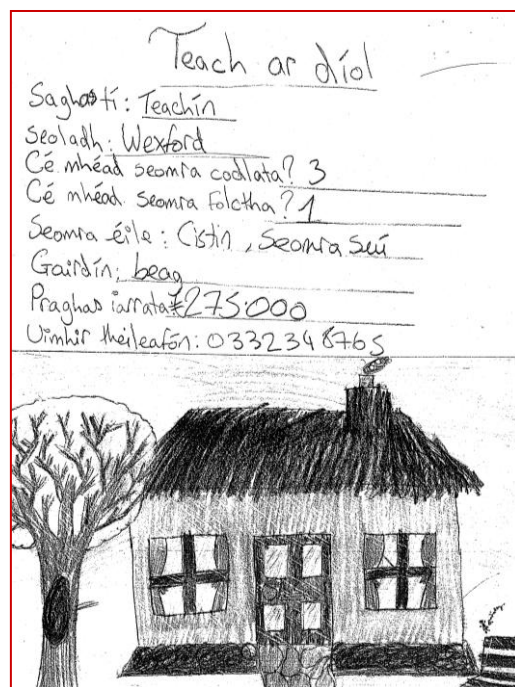 Teach ar díol
Saghas tí: Teachín
Seoladh: Wexford
Cé mhéad seomra codlata? 3
Cé mhéad seomra folctha? 1
Seomra éile: Cistin, Seomra Suí
Gairdín: beag
Praghas iarrata: €275.000
Uimhir theileafón: 0332348765